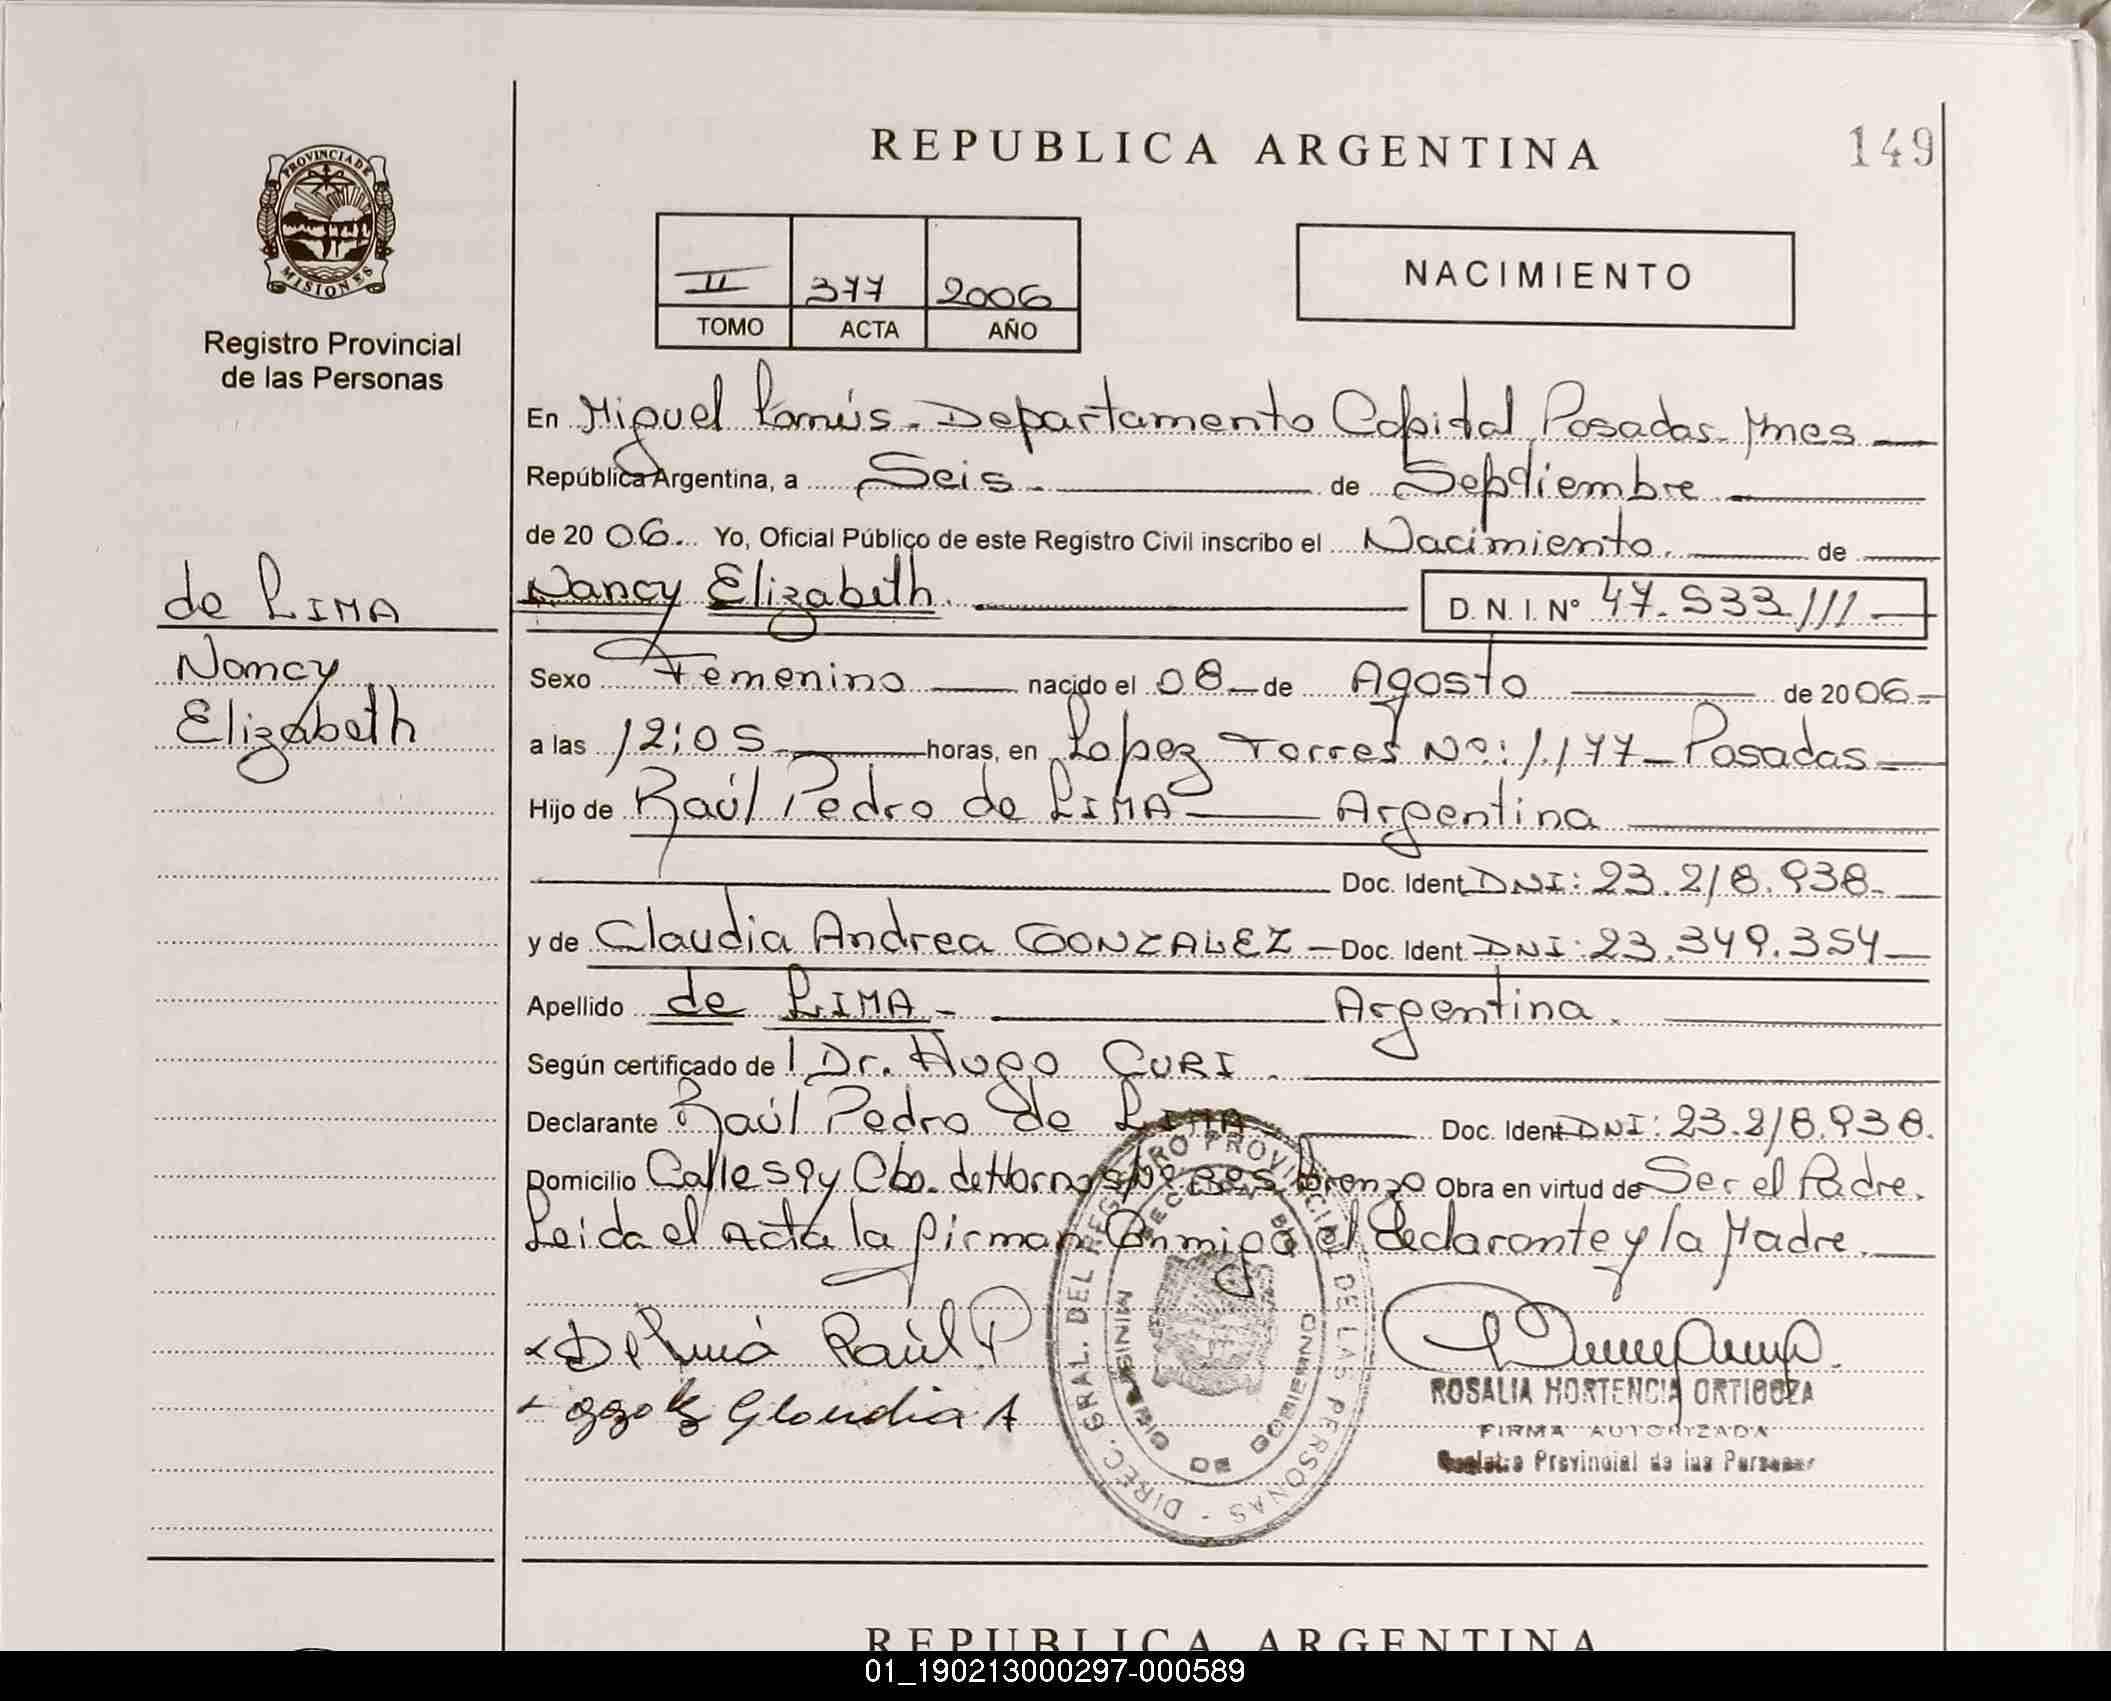 REPUBLICA ARGENTINA
149
PROVINCIA DE
MISIONES
Registro Provincial
de las Personas
II 377 2006
TOMO ACTA AÑO
NACIMIENTO
En Miguel Lanús. Departamento Capital Posadas. Mnes
República Argentina, a Seis. de Septiembre
de 2006. Yo, Oficial Público de este Registro Civil inscribo el Nacimiento. de
Nancy Elizabeth. D. N. I. N° 47.533///
de LIMA
Nancy
Elizabeth
Sexo Femenino nacido el 08 de Agosto de 2006
a las 12:05 horas, en Lopez Torres No: 1.177 Posadas
Hijo de Raúl Pedro de LIMA Argentina
Doc. Ident. DNI: 23.218.938.
y de Claudia Andrea GONZALEZ Doc. Ident. DNI: 23.349.354
Apellido de LIMA Argentina.
Según certificado de Dr. Hugo CURI.
Declarante Raúl Pedro de LIMA Doc. Ident DNI: 23.218.938.
Domicilio Calle 59 y Cbo. de Hornos Obra en virtud de Ser el Padre.
Leida el Acta la firman Conmigo el declarante y la Madre.
Raúl P
Claudia A
DIREC. GRAL. DEL REGISTRO PROVINCIAL DE LAS PERSONAS
MINISTERIO DE GOBIERNO
ROSALIA HORTENCIA ORTIGOZA
FIRMA AUTORIZADA
Registro Provincial de las Personas
REPUBLICA ARGENTINA
01_190213000297-000589